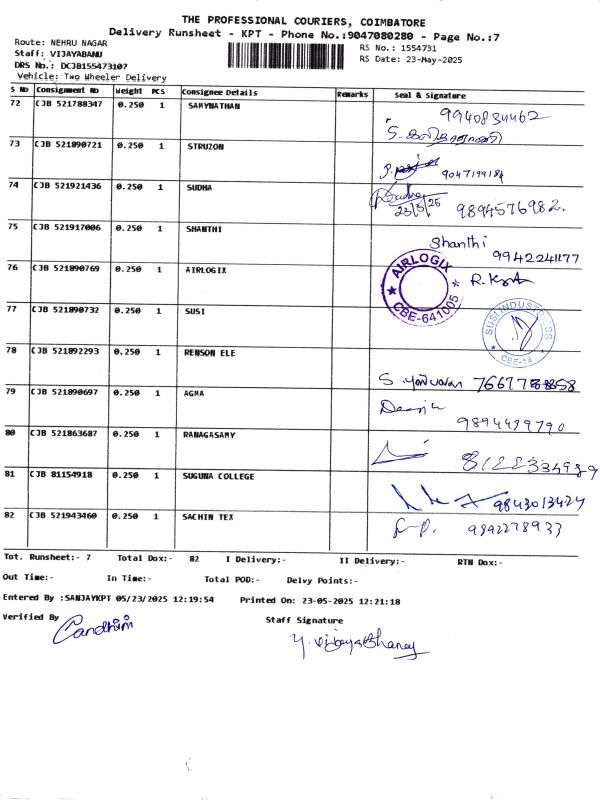 THE PROFESSIONAL COURIERS, COIMBATORE
Delivery Runsheet - KPT - Phone No.:9047080280 - Page No.:7
Route: NEHRU NAGAR
Staff: VIJAYABANU
DRS No.: DCJB155473107
Vehicle: Two Wheeler Delivery
RS No.: 1554731
RS Date: 23-May-2025
S No Consignment No Weight PCS Consignee Details Remarks Seal & Signature
72 CJB 521788347 0.250 1 SAMYNATHAN 9940834462
73 CJB 521890721 0.250 1 STRUZON 9047199184
74 CJB 521921436 0.250 1 SUDHA Sudha 23/5/25 9894576982.
75 CJB 521917006 0.250 1 SHANTHI Shanthi 9942241177
76 CJB 521890769 0.250 1 AIRLOGIX AIRLOGIX CBE-641005
77 CJB 521890732 0.250 1 SUSI SUSI INDUSTRIES CBE-14
78 CJB 521892293 0.250 1 RENSON ELE
79 CJB 521890697 0.250 1 AGMA 9894439790
80 CJB 521863687 0.250 1 RANAGASAMY
81 CJB 81154918 0.250 1 SUGUNA COLLEGE 9843013424
82 CJB 521943460 0.250 1 SACHIN TEX 9842278933
Tot. Runsheet:- 7 Total Dox:- 82 I Delivery:- II Delivery:- RTN Dox:-
Out Time:- In Time:- Total POD:- Delvy Points:-
Entered By :SANJAYKPT 05/23/2025 12:19:54 Printed On: 23-05-2025 12:21:18
Verified By Staff Signature
Y. vijayabhaney